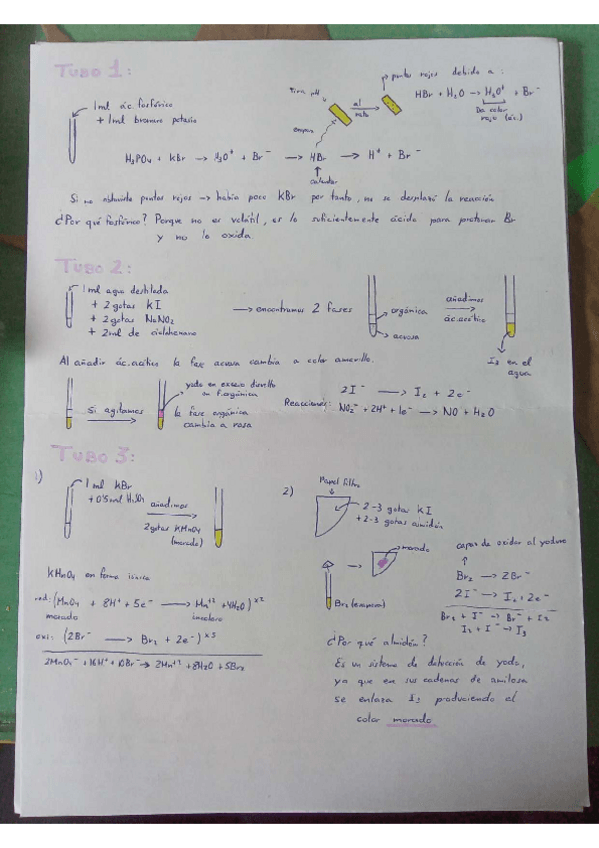 TUBO 1:
1ml ác. fosfórico
+ 1ml bromuro potasio
Tira pH
al rato
puntos rojos debido a:
HBr + H₂O → H₃O⁺ + Br⁻
Da color
rojo (ác.)
H₃PO₄ + KBr → H₃O⁺ + Br⁻ → HBr → H⁺ + Br⁻
calentar
Si no obtuviera puntos rojos → había poco KBr por tanto, no se desplazó la reacción
¿Por qué fosfórico? Porque no es volátil, es lo suficientemente ácido para protonar Br
y no lo oxida.
TUBO 2:
1ml agua destilada
+ 2 gotas KI
+ 2 gotas NaNO₂
+ 2ml de ciclohexano
→ encontramos 2 fases
orgánica
acuosa
añadimos
ác. acético
I₂ en el
agua
Al añadir ác. acético la fase acuosa cambia a color amarillo.
si agitamos
yodo en exceso disuelto
en f. orgánica
la fase orgánica
cambia a rosa
Reacciones:
2I⁻ → I₂ + 2e⁻
NO₂⁻ + 2H⁺ + 1e⁻ → NO + H₂O
TUBO 3:
1)
1 ml KBr
+ 0'5 ml H₂SO₄
añadimos
2 gotas KMnO₄
(morado)
KMnO₄ en forma iónica
red: (MnO₄⁻ + 8H⁺ + 5e⁻ → Mn⁺² + 4H₂O) ×2
morado
incoloro
oxi: (2Br⁻ → Br₂ + 2e⁻) ×5
2MnO₄⁻ + 16H⁺ + 10Br⁻ → 2Mn⁺² + 8H₂O + 5Br₂
2)
Papel filtro
2-3 gotas KI
+ 2-3 gotas almidón
morado
Br₂ (vapores)
capaz de oxidar al yoduro
Br₂ → 2Br⁻
2I⁻ → I₂ + 2e⁻
Br₂ + I⁻ → Br⁻ + I₂
I₂ + I⁻ → I₃
¿Por qué almidón?
Es un sistema de detección de yodo,
ya que en sus cadenas de amilosa
se enlaza I₃ produciendo el
color morado